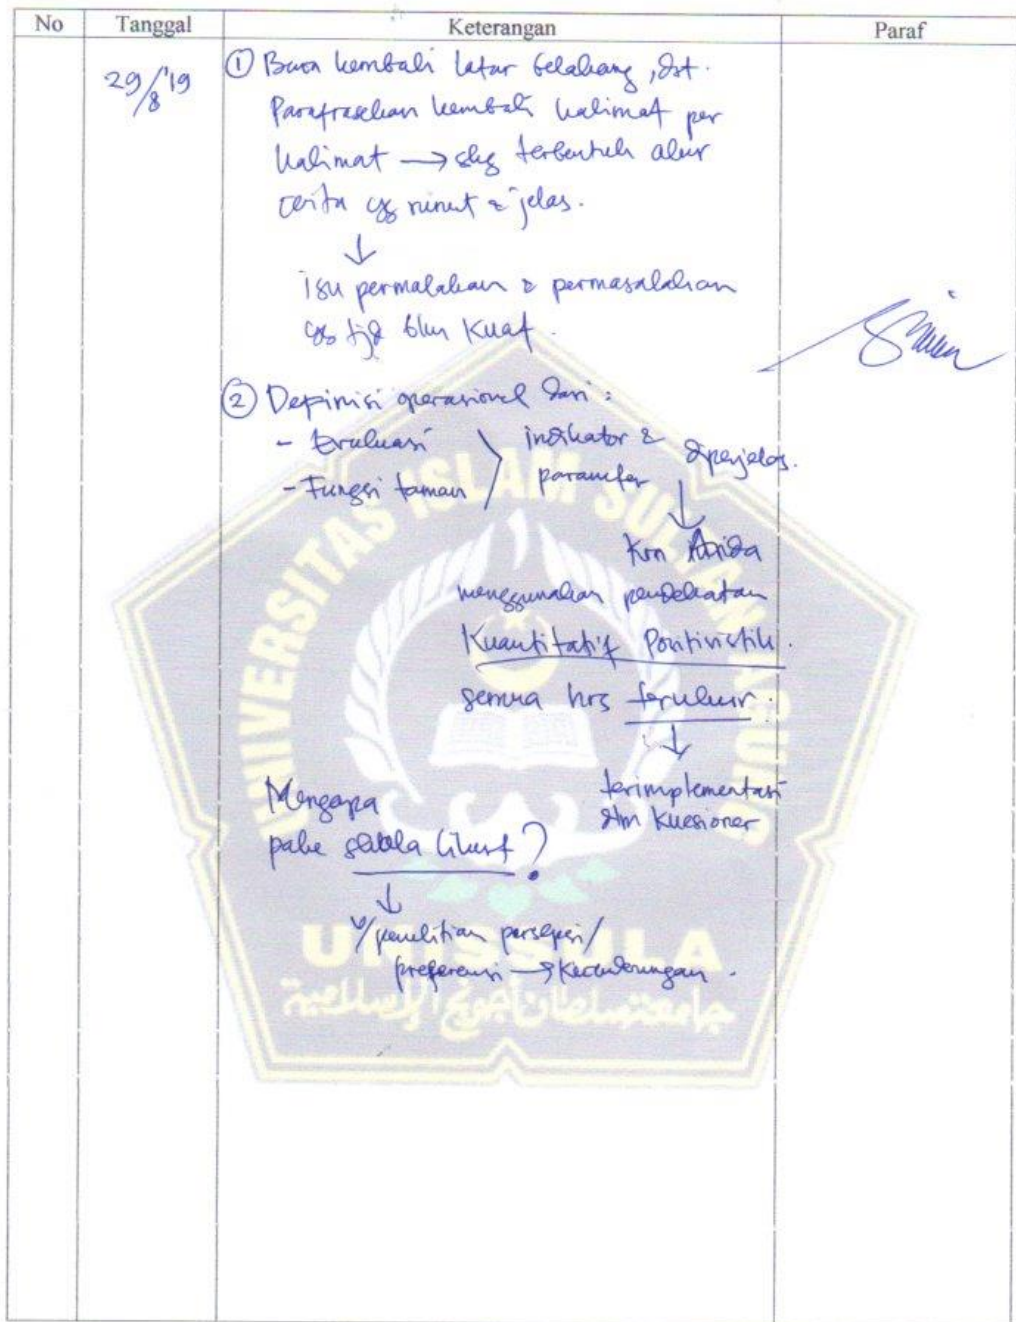 No Tanggal Keterangan Paraf
29/8 '19
① Baca kembali latar belakang, dst.
Parafrasekan kembali kalimat per
kalimat → shg terbentuk alur
cerita yg runut & jelas.
↓
isu permalahan & permasalahan
yg tjd blm kuat.
② Depinisi operasional dari :
- Evaluasi
- Fungsi taman
indikator &
parameter
diperjelas.
↓
krn Anda
menggunakan pendekatan
Kuantitatif Positivistik.
semua hrs terukur.
↓
terimplementasi
dlm Kuesioner
Mengapa
pake skala likert ?
↓
u/penelitian persepsi/
preferensi → Kecenderungan.
UNIVERSITAS ISLAM SULTAN AGUNG
UNISSULA
جامعتسلطان أجونج الإسلامية